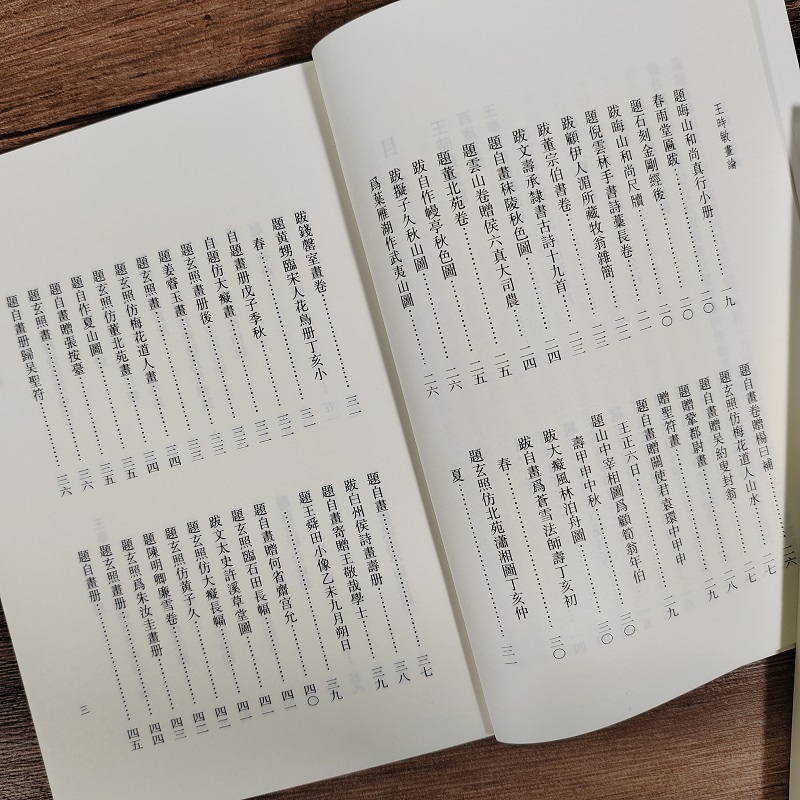 王時敏畫論
題晦山和尚真行小册……一九
春雨堂匾跋……二〇
題石刻金剛經後……二〇
跋晦山和尚尺牘……二一
題倪雲林手書詩藁長卷……二二
跋顧伊人湄所藏牧翁雜簡……二三
跋董宗伯書卷……二三
跋文壽承隸書古詩十九首……二四
題自畫秣陵秋色圖……二四
題雲山卷贈侯六真大司農……二五
題董北苑卷……二五
跋自作幔亭秋色圖……二六
跋擬子久秋山圖……二六
爲葉雁湖作武夷山圖……二六
題自畫卷贈楊曰補……二六
題玄照仿梅花道人山水……二七
題自畫贈吴約叟封翁……二七
題贈鞏都尉畫……二八
贈聖符畫……二九
題自畫贈關使君袁環中甲申
王正六日……二九
題山中宰相圖爲顧筍翁年伯
壽甲申中秋……三〇
跋大癡風林泊舟圖……三〇
跋自畫爲蒼雪法師壽丁亥初
春……三〇
題玄照仿北苑瀟湘圖丁亥仲
夏……三一
跋錢罄室畫卷……三一
題黄甥臨宋人花鳥册丁亥小
春……三一
自題畫册戊子季秋……三二
自題仿大癡畫……三二
題玄照畫册後……三三
題姜睿玉畫……三三
題玄照畫……三四
題玄照仿梅花道人畫……三四
題玄照仿董北苑畫……三五
題自作夏山圖……三五
題自畫贈張按臺……三五
題玄照畫……三六
題自畫册歸吴聖符……三六
題自畫……三七
跋白州侯詩畫壽册……三八
題自畫寄贈王敬哉學士……三九
題王舜田小像乙未九月朔日……三九
題自畫贈何省齋宫允……四〇
題玄照臨石田長幅……四一
跋文太史許溪草堂圖……四一
題玄照仿大癡長幅……四二
題玄照仿黄子久……四二
題陳明卿廉雪卷……四三
題玄照爲朱汝圭畫册……四四
題玄照畫册……四四
題自畫册……四五
三